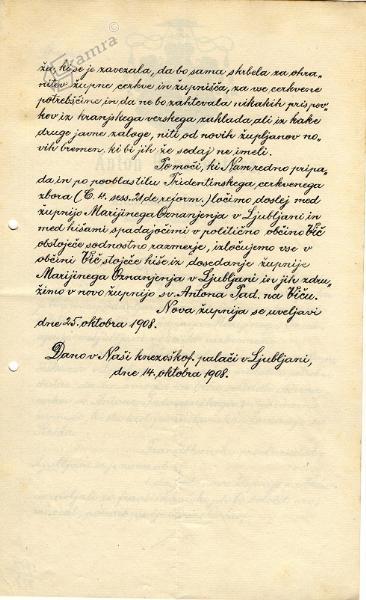 kamra
ža, ki se je zavezala, da bo sama skrbela za ohra„
nitev župne cerkve in župnišča, za vse cerkvene
potrebščine in da ne bo zahtevala nikakih prispov„
kov iz kranjskega verskega zaklada ali iz kake
druge javne zaloge, niti od novih župljanov no„
vih bremen, ki bi jih že sedaj ne imeli.
Po moči, ki Nam redno pripa„
da in po pooblastilu Tridentinskega cerkvenega
zbora (C. 4. ses. 21 de reform.) ločimo doslej med
župnijo Marijinega Oznanjenja v Ljubljani in
med hišami spadajočimi v politično občino Vič
obstoječe sodnostno razmerje, izločujemo vse v
občini Vič stoječe hiše iz dosedanje župnije
Marijinega Oznanjenja v Ljubljani in jih zdru„
žimo v novo župnijo sv. Antona Pad. na Viču.
Nova župnija se uveljavi
dne 25. oktobra 1908.
Dano v Naši knezoškof. palači v Ljubljani,
dne 14. oktobra 1908.